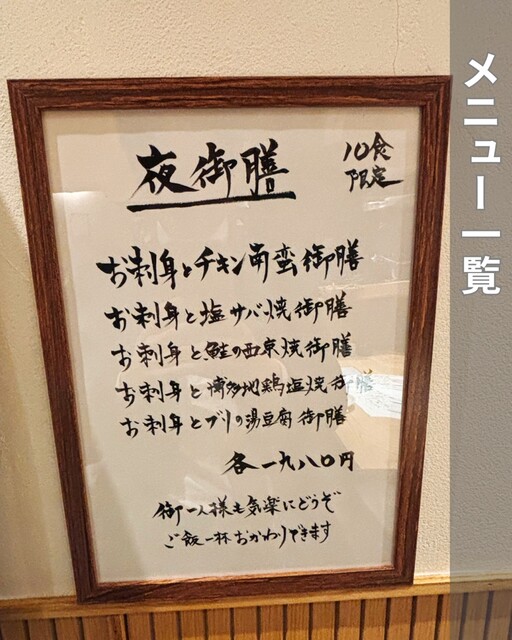 メニュー一覧
夜御膳
10食
限定
お刺身とチキン南蛮御膳
お刺身と塩サバ焼御膳
お刺身と鮭の西京焼御膳
お刺身と博多地鶏塩焼御膳
お刺身とブリの湯豆腐御膳
各一九八〇円
御一人様も気楽にどうぞ
ご飯一杯おかわりできます